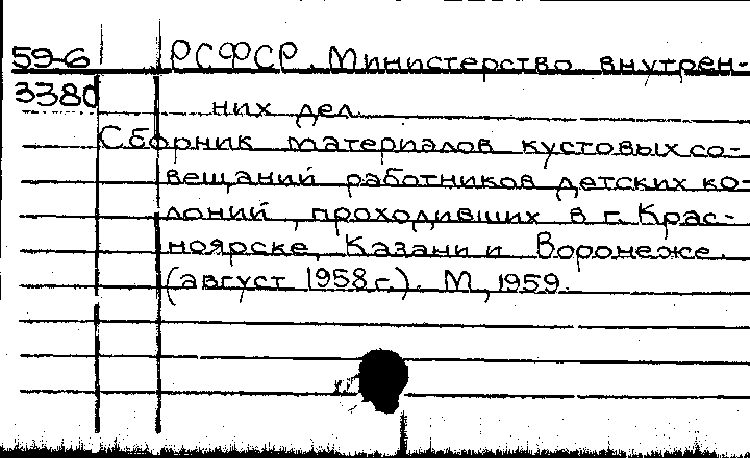 59-6 РСФСР. Министерство внутрен-
3380 них дел.
Сборник материалов кустовых со-
вещаний работников детских ко-
лоний, проходивших в г. Крас-
ноярске, Казани и Воронеже.
(август 1958 г.). М., 1959.